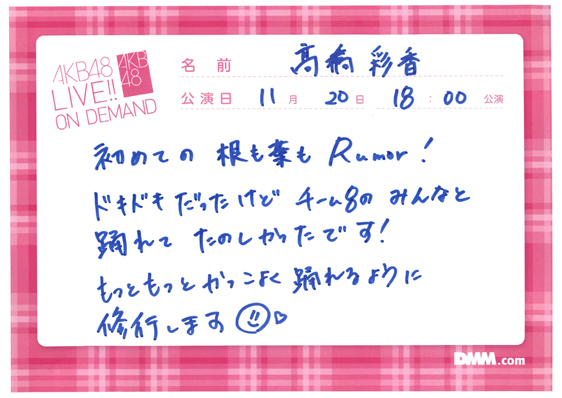 AKB48
LIVE!!
ON DEMAND
AKB
48
名前 髙橋 彩香
公演日 11月 20日 18:00 公演
初めての 根も葉も Rumor!
ドキドキだったけど チーム8の みんなと
踊れて たのしかったです!
もっともっと かっこよく 踊れるように
修行します
DMM.com